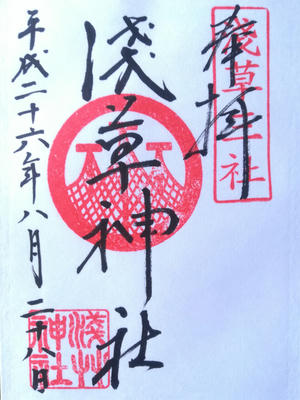 奉拝
浅草三社
浅草神社
平成二十六年八月二十八日
浅草神社